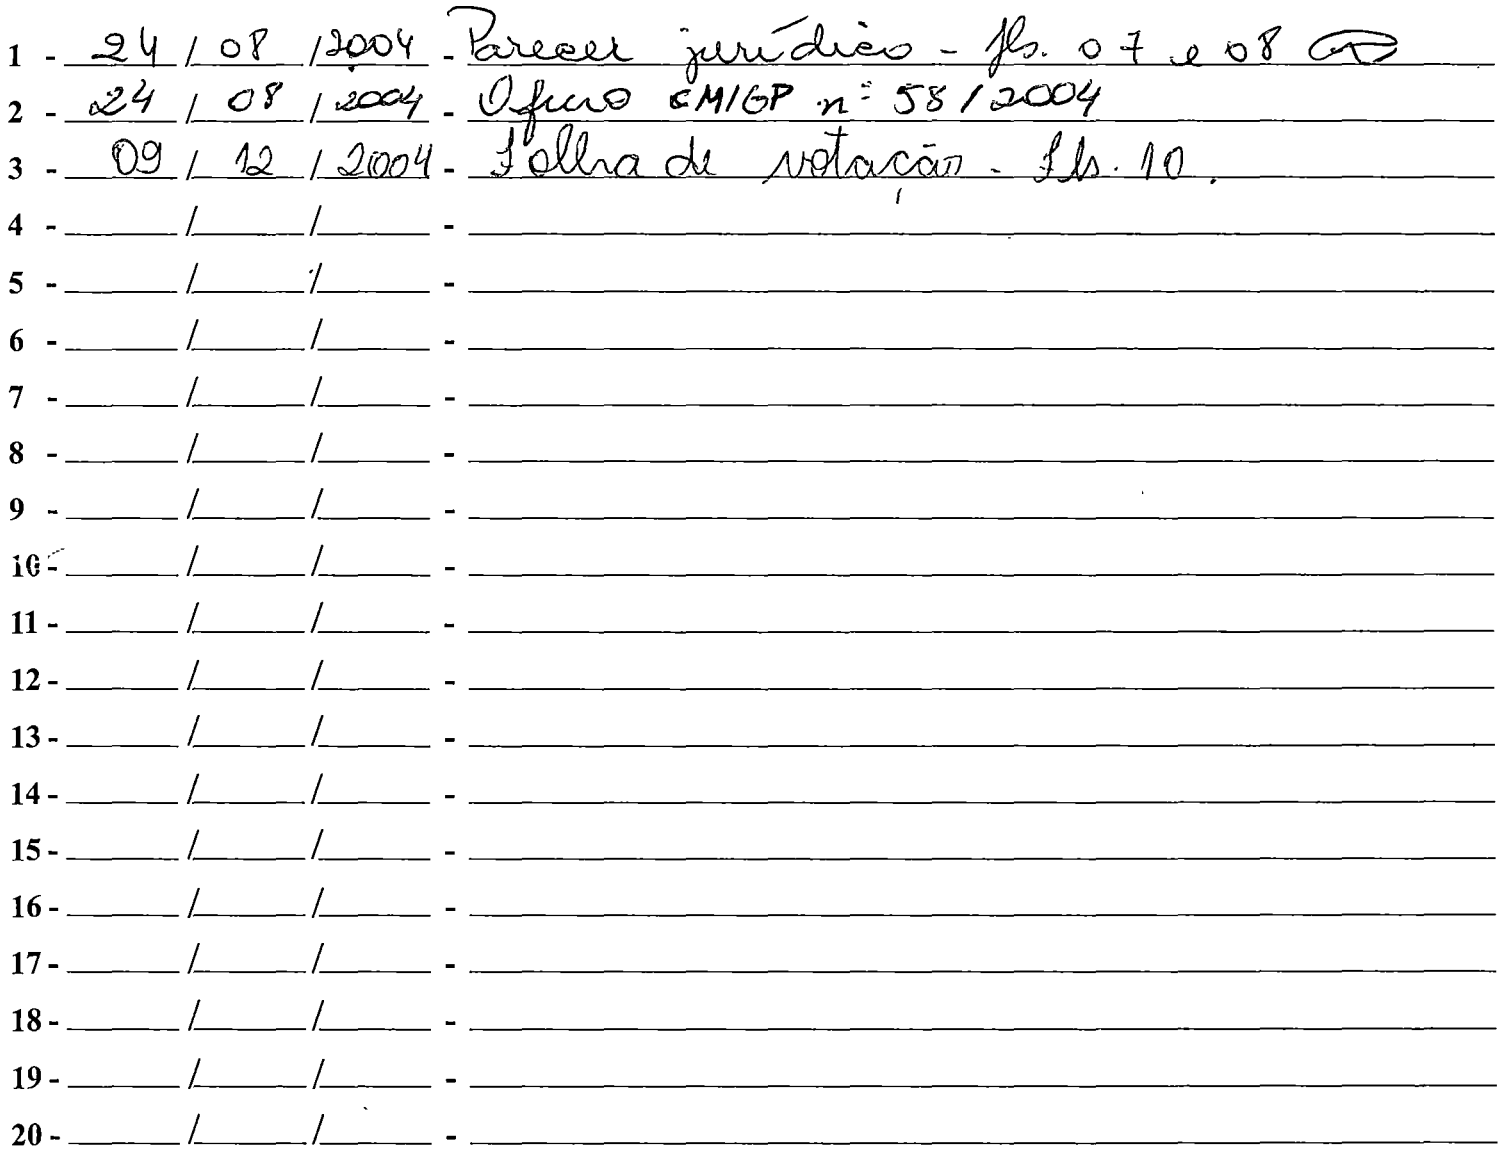 1 - 24 / 08 / 2004 - Parecer jurídico - fls. 07 e 08
2 - 24 / 08 / 2004 - Ofício CM/GP nº 58 / 2004
3 - 09 / 12 / 2004 - Folha de votação - Fls. 10.
4 - ____/____/____ -
5 - ____/____/____ -
6 - ____/____/____ -
7 - ____/____/____ -
8 - ____/____/____ -
9 - ____/____/____ -
10 - ____/____/____ -
11 - ____/____/____ -
12 - ____/____/____ -
13 - ____/____/____ -
14 - ____/____/____ -
15 - ____/____/____ -
16 - ____/____/____ -
17 - ____/____/____ -
18 - ____/____/____ -
19 - ____/____/____ -
20 - ____/____/____ -